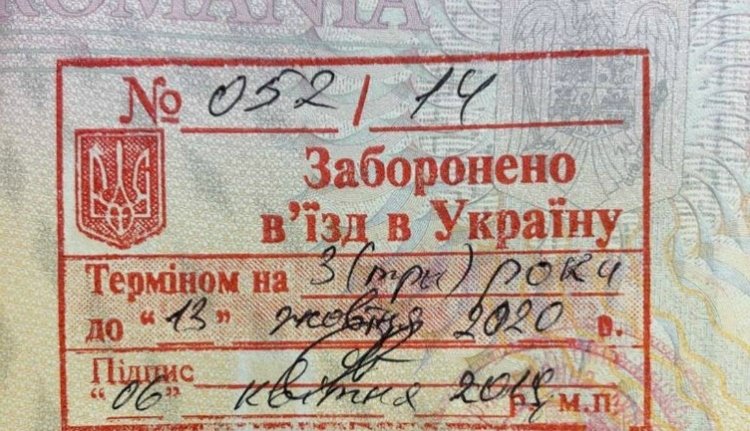 ROMANIA
№ 052 / 14
Заборонено
в'їзд в Україну
Терміном на 3 (три) роки
до "13" жовтня 2020 р.
Підпис
"06" квітня р. м.п.